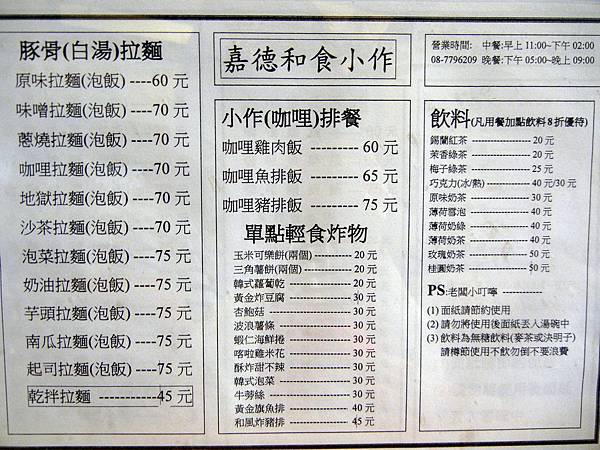 豚骨(白湯)拉麵
原味拉麵(泡飯) ----60 元
味噌拉麵(泡飯) ---- 70 元
蔥燒拉麵(泡飯) ---- 70 元
咖哩拉麵(泡飯) ---- 70 元
地獄拉麵(泡飯) ---- 70 元
沙茶拉麵(泡飯) ---- 70 元
泡菜拉麵(泡飯) ----75 元
奶油拉麵(泡飯) ----75 元
芋頭拉麵(泡飯) ----75 元
南瓜拉麵(泡飯) ----75 元
起司拉麵(泡飯) ----75 元
乾拌拉麵 -----------45 元
嘉德和食小作
小作(咖哩)排餐
咖哩雞肉飯 ---------- 60 元
咖哩魚排飯 ---------- 65 元
咖哩豬排飯 ---------- 75 元
單點輕食炸物
玉米可樂餅(兩個) ------------- 20 元
三角薯餅(兩個) --------------- 20 元
韓式蘿蔔乾 ------------------- 20 元
黃金炸豆腐 ------------------- 30 元
杏鮑菇 ----------------------- 30 元
波浪薯條 --------------------- 30 元
蝦仁海鮮捲 ------------------- 30 元
喀啦雞米花 ------------------- 30 元
酥炸甜不辣 ------------------- 30 元
韓式泡菜 --------------------- 30 元
牛蒡絲 ----------------------- 30 元
黃金旗魚排 ------------------- 40 元
和風炸豬排 ------------------- 45 元
營業時間: 中餐:早上 11:00~下午 02:00
08-7796209 晚餐:下午 05:00~晚上 09:00
飲料(凡用餐加點飲料 8 折優待)
錫蘭紅茶 ---------------- 20 元
茉香綠茶 ---------------- 20 元
梅子綠茶 ---------------- 25 元
巧克力(冰/熱) ----------- 40 元/30 元
原味奶茶 ---------------- 30 元
薄荷雪泡 ---------------- 40 元
薄荷奶綠 ---------------- 40 元
薄荷奶茶 ---------------- 40 元
玫瑰奶茶 ---------------- 50 元
桂圓奶茶 ---------------- 50 元
PS:老闆小叮嚀 ------------
(1) 面紙請節約使用
(2) 請勿將使用後面紙丟入湯碗中
(3) 飲料為無糖飲料(麥茶或決明子)
請樽節使用不飲勿倒不要浪費